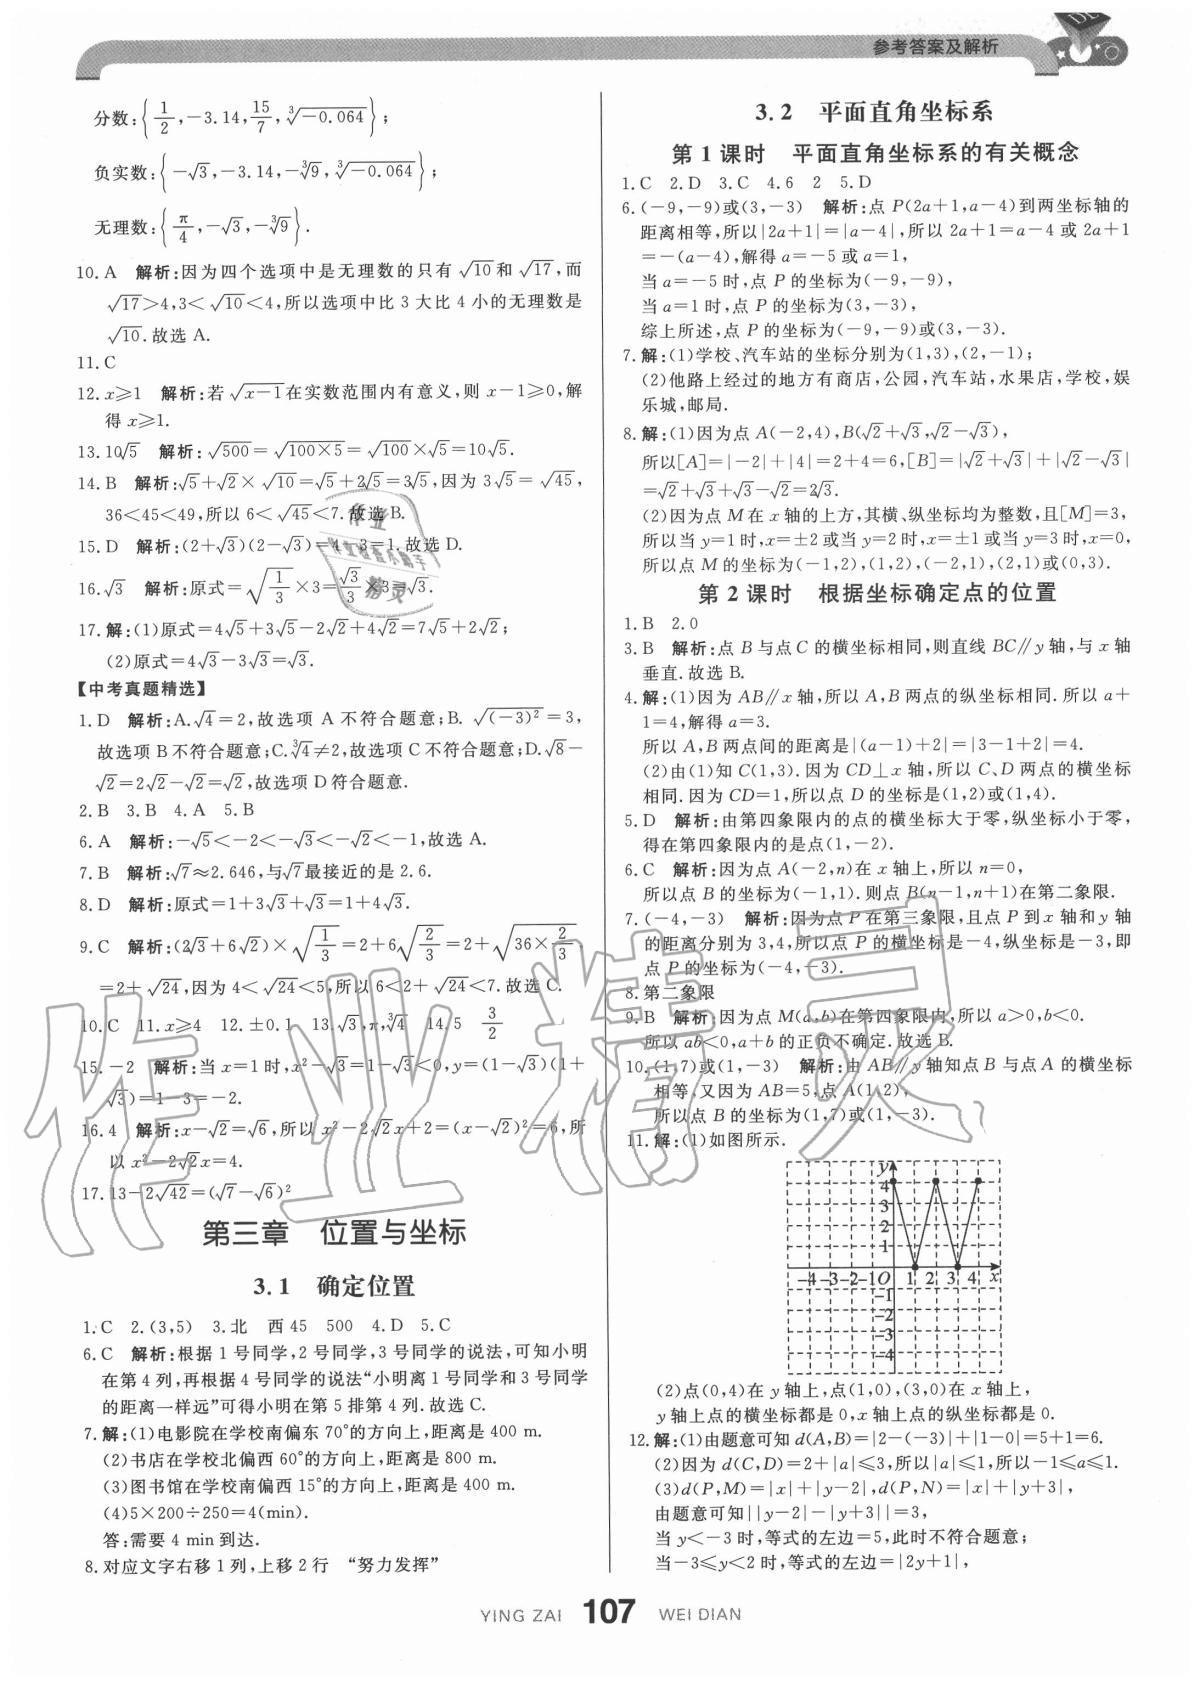 参考答案及解析
分数:{1/2,-3.14,15/7,∛-0.064};
负实数:{-√3,-3.14,-∛9,∛-0.064};
无理数:{π/4,-√3,-∛9}.
10.A　解析:因为四个选项中是无理数的只有√10和√17,而
√17>4,3<√10<4,所以选项中比 3 大比 4 小的无理数是
√10.故选 A.
11.C
12.x⩾1　解析:若√x-1在实数范围内有意义,则 x-1⩾0,解
得 x⩾1.
13.10√5　解析:√500=√100×5=√100×√5=10√5.
14.B　解析:√5+√2×√10=√5+2√5=3√5,因为 3√5=√45,
36<45<49,所以 6<√45<7.故选 B.
15.D　解析:(2+√3)(2-√3)=4-3=1.故选 D.
16.√3　解析:原式=√1/3×3=√3/3×3=√3.
17.解:(1)原式=4√5+3√5-2√2+4√2=7√5+2√2;
(2)原式=4√3-3√3=√3.
【中考真题精选】
1.D　解析:A.√4=2,故选项 A 不符合题意;B.√(-3)²=3,
故选项 B 不符合题意;C.∛4≠2,故选项 C 不符合题意;D.√8-
√2=2√2-√2=√2,故选项 D 符合题意.
2.B　3.B　4.A　5.B
6.A　解析:-√5<-2<-√3<-√2<-1,故选 A.
7.B　解析:√7≈2.646,与√7最接近的是 2.6.
8.D　解析:原式=1+3√3+√3=1+4√3.
9.C　解析:(2√3+6√2)×√1/3=2+6√2/3=2+√36×2/3
=2+√24,因为 4<√24<5,所以 6<2+√24<7.故选 C.
10.C　11.x⩾4　12.±0.1　13.√3,π,∛4　14.5　3/2
15.-2　解析:当 x=1 时,x²-√3=1-√3<0,y=(1-√3)(1+
√3)=1-3=-2.
16.4　解析:x-√2=√6,所以 x²-2√2x+2=(x-√2)²=6,所
以 x²-2√2x=4.
17.13-2√42=(√7-√6)²
第三章　位置与坐标
3.1　确定位置
1.C　2.(3,5)　3.北　西 45　500　4.D　5.C
6.C　解析:根据 1 号同学,2 号同学,3 号同学的说法,可知小明
在第 4 列,再根据 4 号同学的说法“小明离 1 号同学和 3 号同学
的距离一样远”可得小明在第 5 排第 4 列.故选 C.
7.解:(1)电影院在学校南偏东 70°的方向上,距离是 400 m.
(2)书店在学校北偏西 60°的方向上,距离是 800 m.
(3)图书馆在学校南偏西 15°的方向上,距离是 400 m.
(4)5×200÷250=4(min).
答:需要 4 min 到达.
8.对应文字右移 1 列,上移 2 行　“努力发挥”
3.2　平面直角坐标系
第 1 课时　平面直角坐标系的有关概念
1.C　2.D　3.C　4.6　2　5.D
6.(-9,-9)或(3,-3)　解析:点 P(2a+1,a-4)到两坐标轴的
距离相等,所以|2a+1|=|a-4|,所以 2a+1=a-4 或 2a+1
=-(a-4),解得 a=-5 或 a=1,
当 a=-5 时,点 P 的坐标为(-9,-9),
当 a=1 时,点 P 的坐标为(3,-3),
综上所述,点 P 的坐标为(-9,-9)或(3,-3).
7.解:(1)学校、汽车站的坐标分别为(1,3),(2,-1);
(2)他路上经过的地方有商店,公园,汽车站,水果店,学校,娱
乐城,邮局.
8.解:(1)因为点 A(-2,4),B(√2+√3,√2-√3),
所以[A]=|-2|+|4|=2+4=6,[B]=|√2+√3|+|√2-√3|
=√2+√3+√3-√2=2√3.
(2)因为点 M 在 x 轴的上方,其横、纵坐标均为整数,且[M]=3,
所以当 y=1 时,x=±2 或当 y=2 时,x=±1 或当 y=3 时,x=0,
所以点 M 的坐标为(-1,2),(1,2),(-2,1),(2,1)或(0,3).
第 2 课时　根据坐标确定点的位置
1.B　2.0
3.B　解析:点 B 与点 C 的横坐标相同,则直线 BC∥y 轴,与 x 轴
垂直.故选 B.
4.解:(1)因为 AB∥x 轴,所以 A,B 两点的纵坐标相同.所以 a+
1=4,解得 a=3.
所以 A,B 两点间的距离是|(a-1)+2|=|3-1+2|=4.
(2)由(1)知 C(1,3).因为 CD⊥x 轴,所以 C、D 两点的横坐标
相同.因为 CD=1,所以点 D 的坐标是(1,2)或(1,4).
5.D　解析:由第四象限内的点的横坐标大于零,纵坐标小于零,
得在第四象限内的是点(1,-2).
6.C　解析:因为点 A(-2,n)在 x 轴上,所以 n=0,
所以点 B 的坐标为(-1,1).则点 B(n-1,n+1)在第二象限.
7.(-4,-3)　解析:因为点 P 在第三象限,且点 P 到 x 轴和 y 轴
的距离分别为 3,4,所以点 P 的横坐标是-4,纵坐标是-3,即
点 P 的坐标为(-4,-3).
8.第二象限
9.B　解析:因为点 M(a,b)在第四象限内,所以 a>0,b<0.
所以 ab<0,a+b 的正负不确定.故选 B.
10.(1,7)或(1,-3)　解析:由 AB∥y 轴知点 B 与点 A 的横坐标
相等,又因为 AB=5,点 A(1,2),
所以点 B 的坐标为(1,7)或(1,-3).
11.解:(1)如图所示.
y
4
3
2
1
-4 -3 -2 -1 O 1 2 3 4 x
-1
-2
-3
-4
(2)点(0,4)在 y 轴上,点(1,0),(3,0)在 x 轴上,
y 轴上点的横坐标都是 0,x 轴上点的纵坐标都是 0.
12.解:(1)由题意可知 d(A,B)=|2-(-3)|+|1-0|=5+1=6.
(2)因为 d(C,D)=2+|a|⩽3,所以|a|⩽1,所以-1⩽a⩽1.
(3)d(P,M)=|x|+|y-2|,d(P,N)=|x|+|y+3|,
由题意可知||y-2|-|y+3||=3,
当 y<-3 时,等式的左边=5,此时不符合题意;
当-3⩽y<2 时,等式的左边=|2y+1|,
YING ZAI 107 WEI DIAN
作业精灵